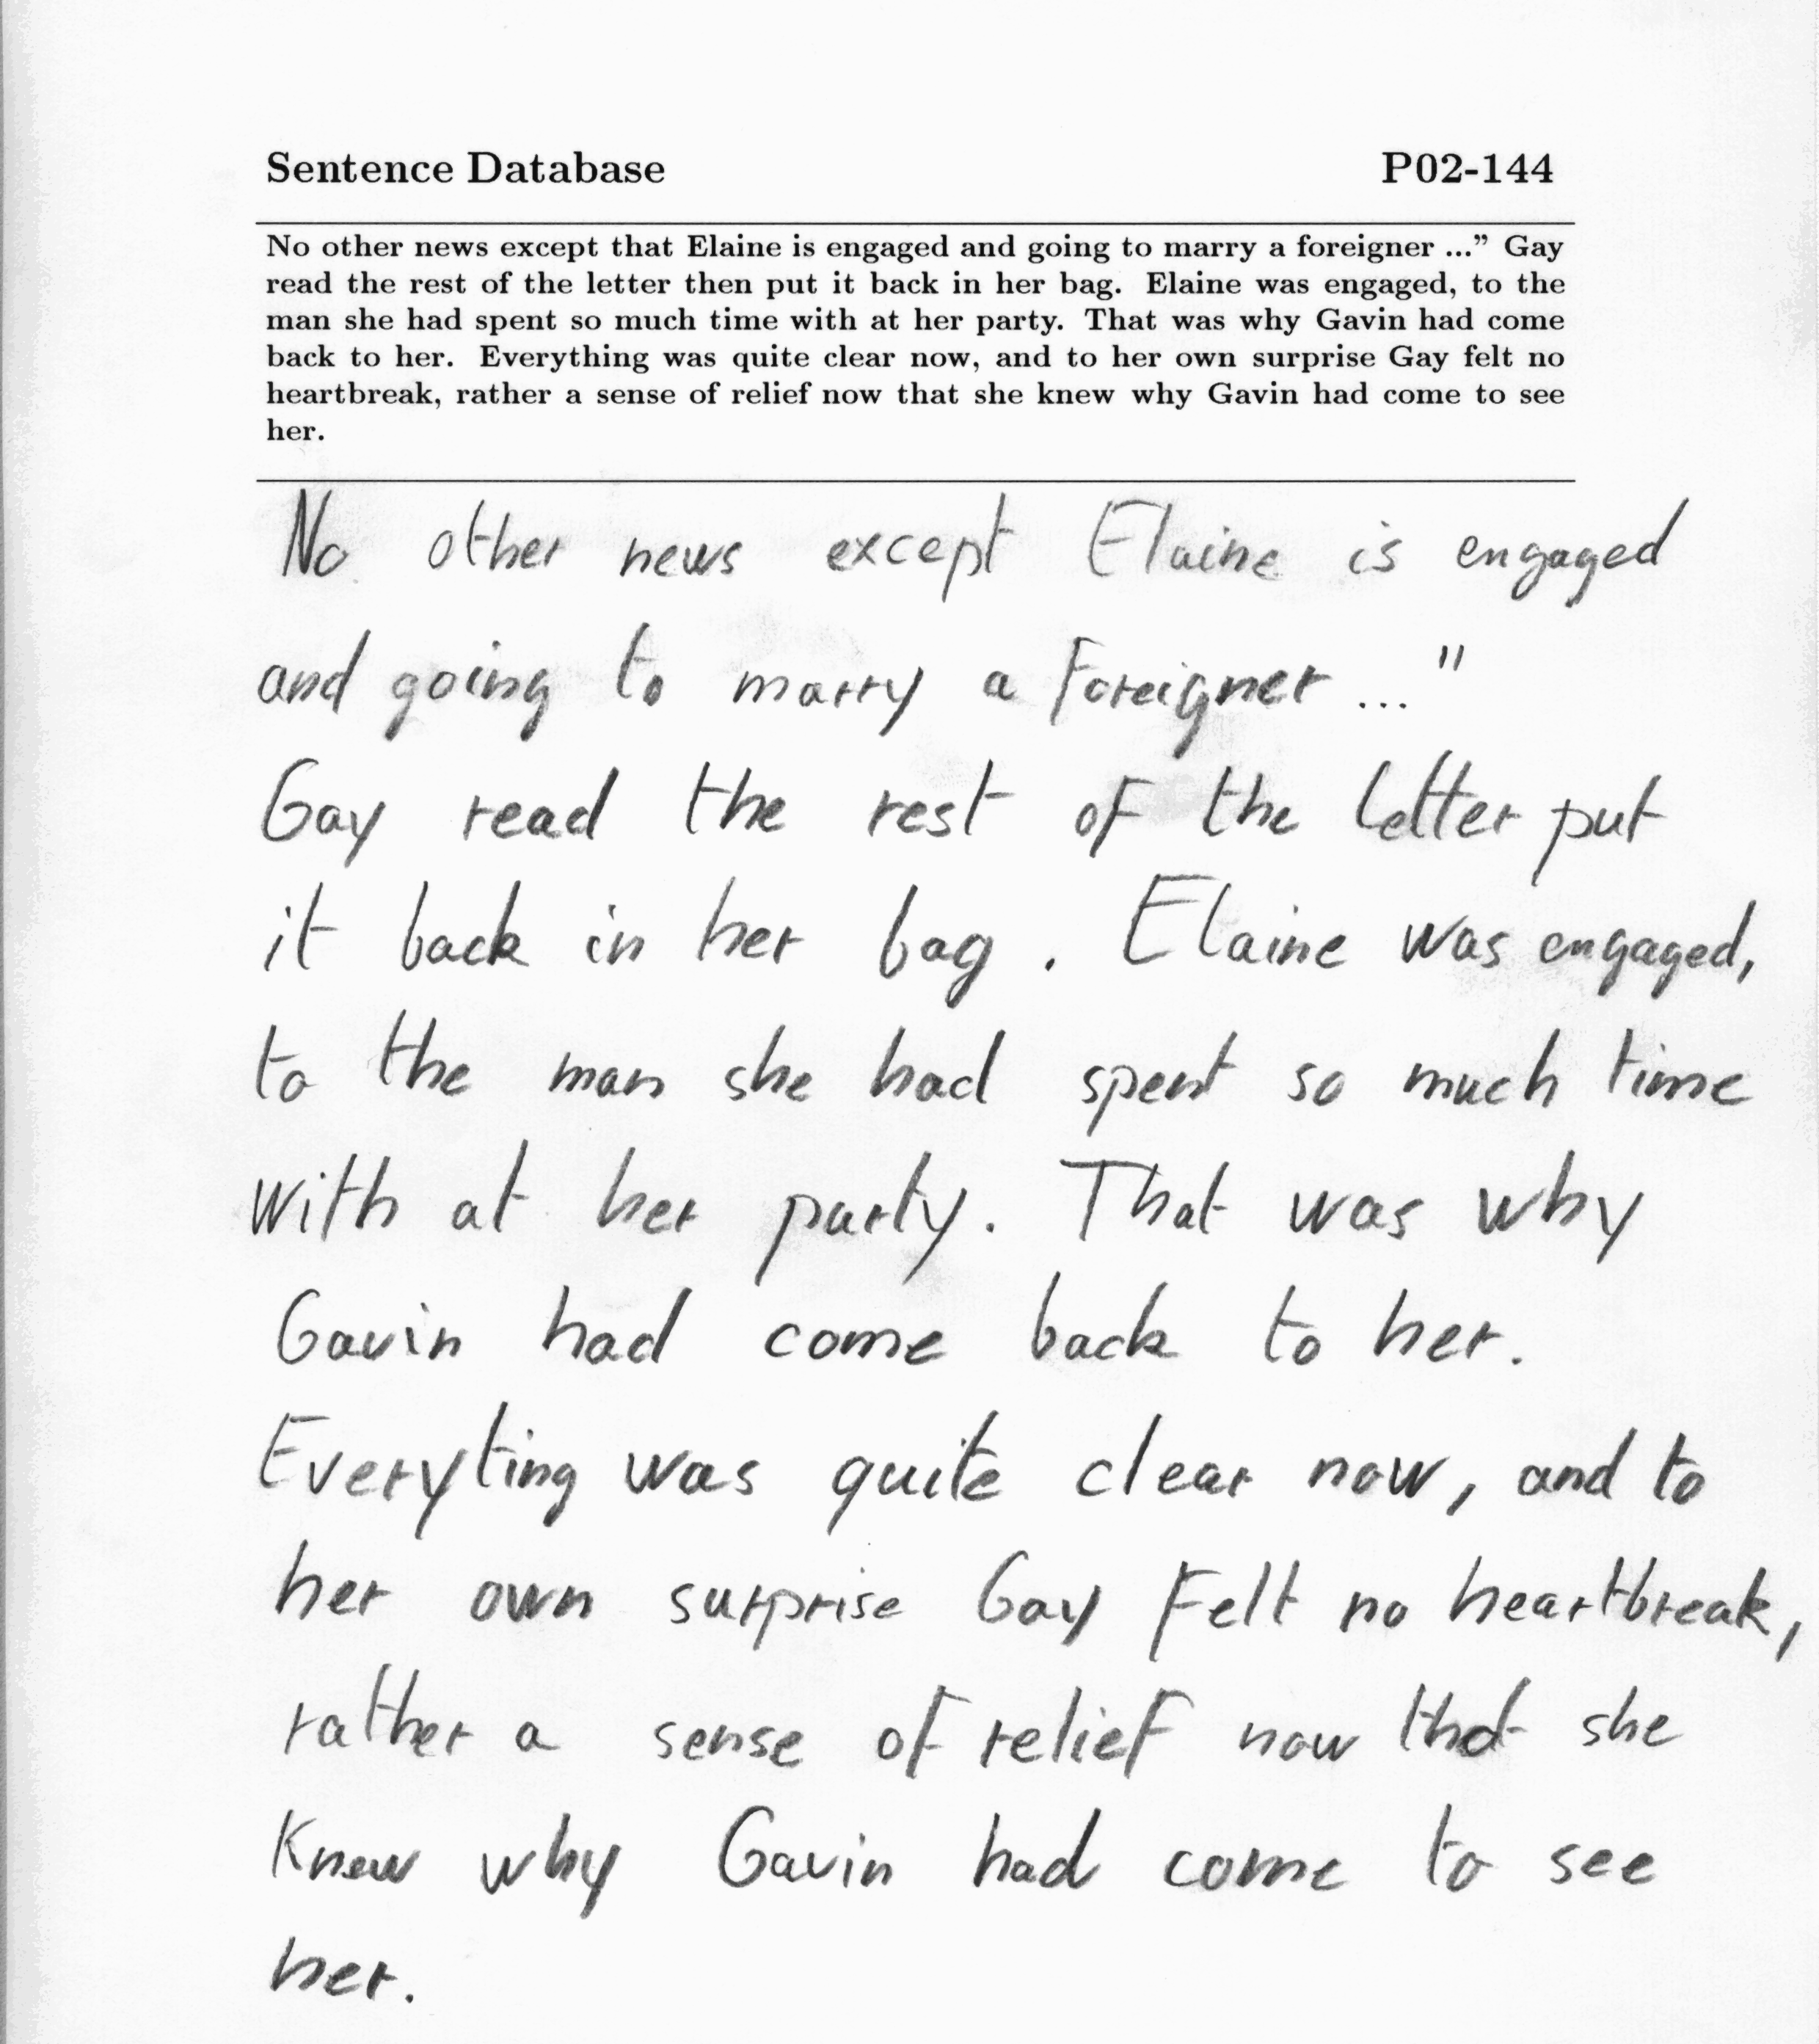 Sentence Database P02-144
No other news except that Elaine is engaged and going to marry a foreigner ..." Gay
read the rest of the letter then put it back in her bag. Elaine was engaged, to the
man she had spent so much time with at her party. That was why Gavin had come
back to her. Everything was quite clear now, and to her own surprise Gay felt no
heartbreak, rather a sense of relief now that she knew why Gavin had come to see
her.
No other news except Elaine is engaged
and going to marry a foreigner ..."
Gay read the rest of the letter put
it back in her bag . Elaine was engaged,
to the man she had spent so much time
with at her party. That was why
Gavin had come back to her.
Everyting was quite clear now, and to
her own surprise Gay felt no heartbreak,
rather a sense of relief now that she
knew why Gavin had come to see
her.